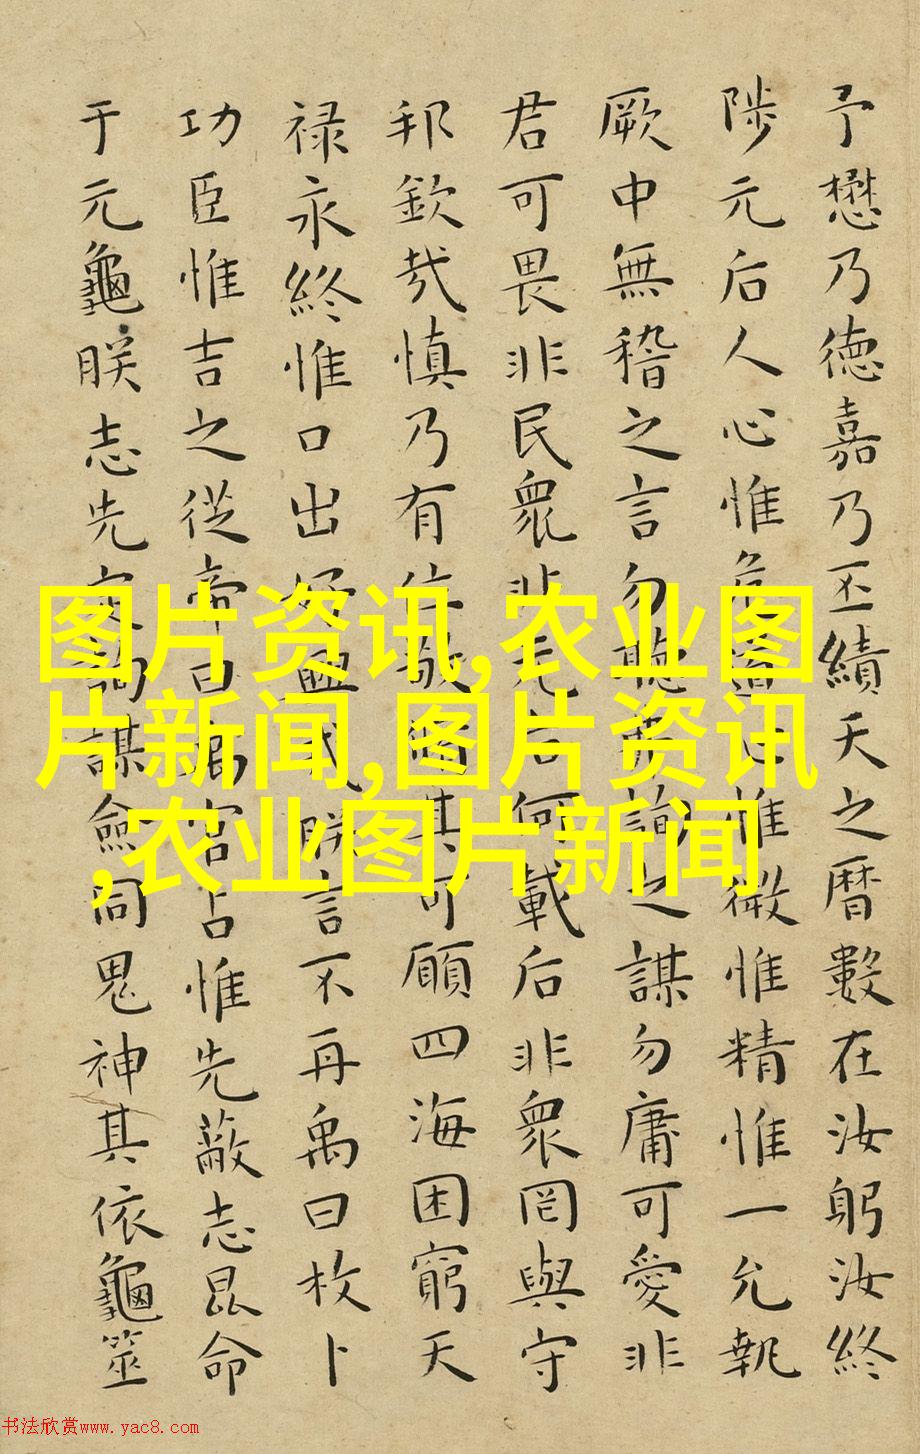 予懋乃徳嘉乃丕績天之曆數在汝躬汝終
陟元后人心惟危道心惟微惟精惟一允執
厥中無稽之言勿聽弗詢之謀勿庸可愛非
君可畏非民衆非元后何載后非衆罔與守
邦欽哉慎乃有位敬脩其可願四海困窮天
禄永終惟口出好興戎朕言不再禹曰枚卜
功臣惟吉之從帝曰禹官占惟先蔽志昆命
于元龜朕志先定詢謀僉同鬼神其依龜筮
图片资讯,农业图
片新闻,图片资讯
,农业图片新闻
书法欣赏www.yac8.com